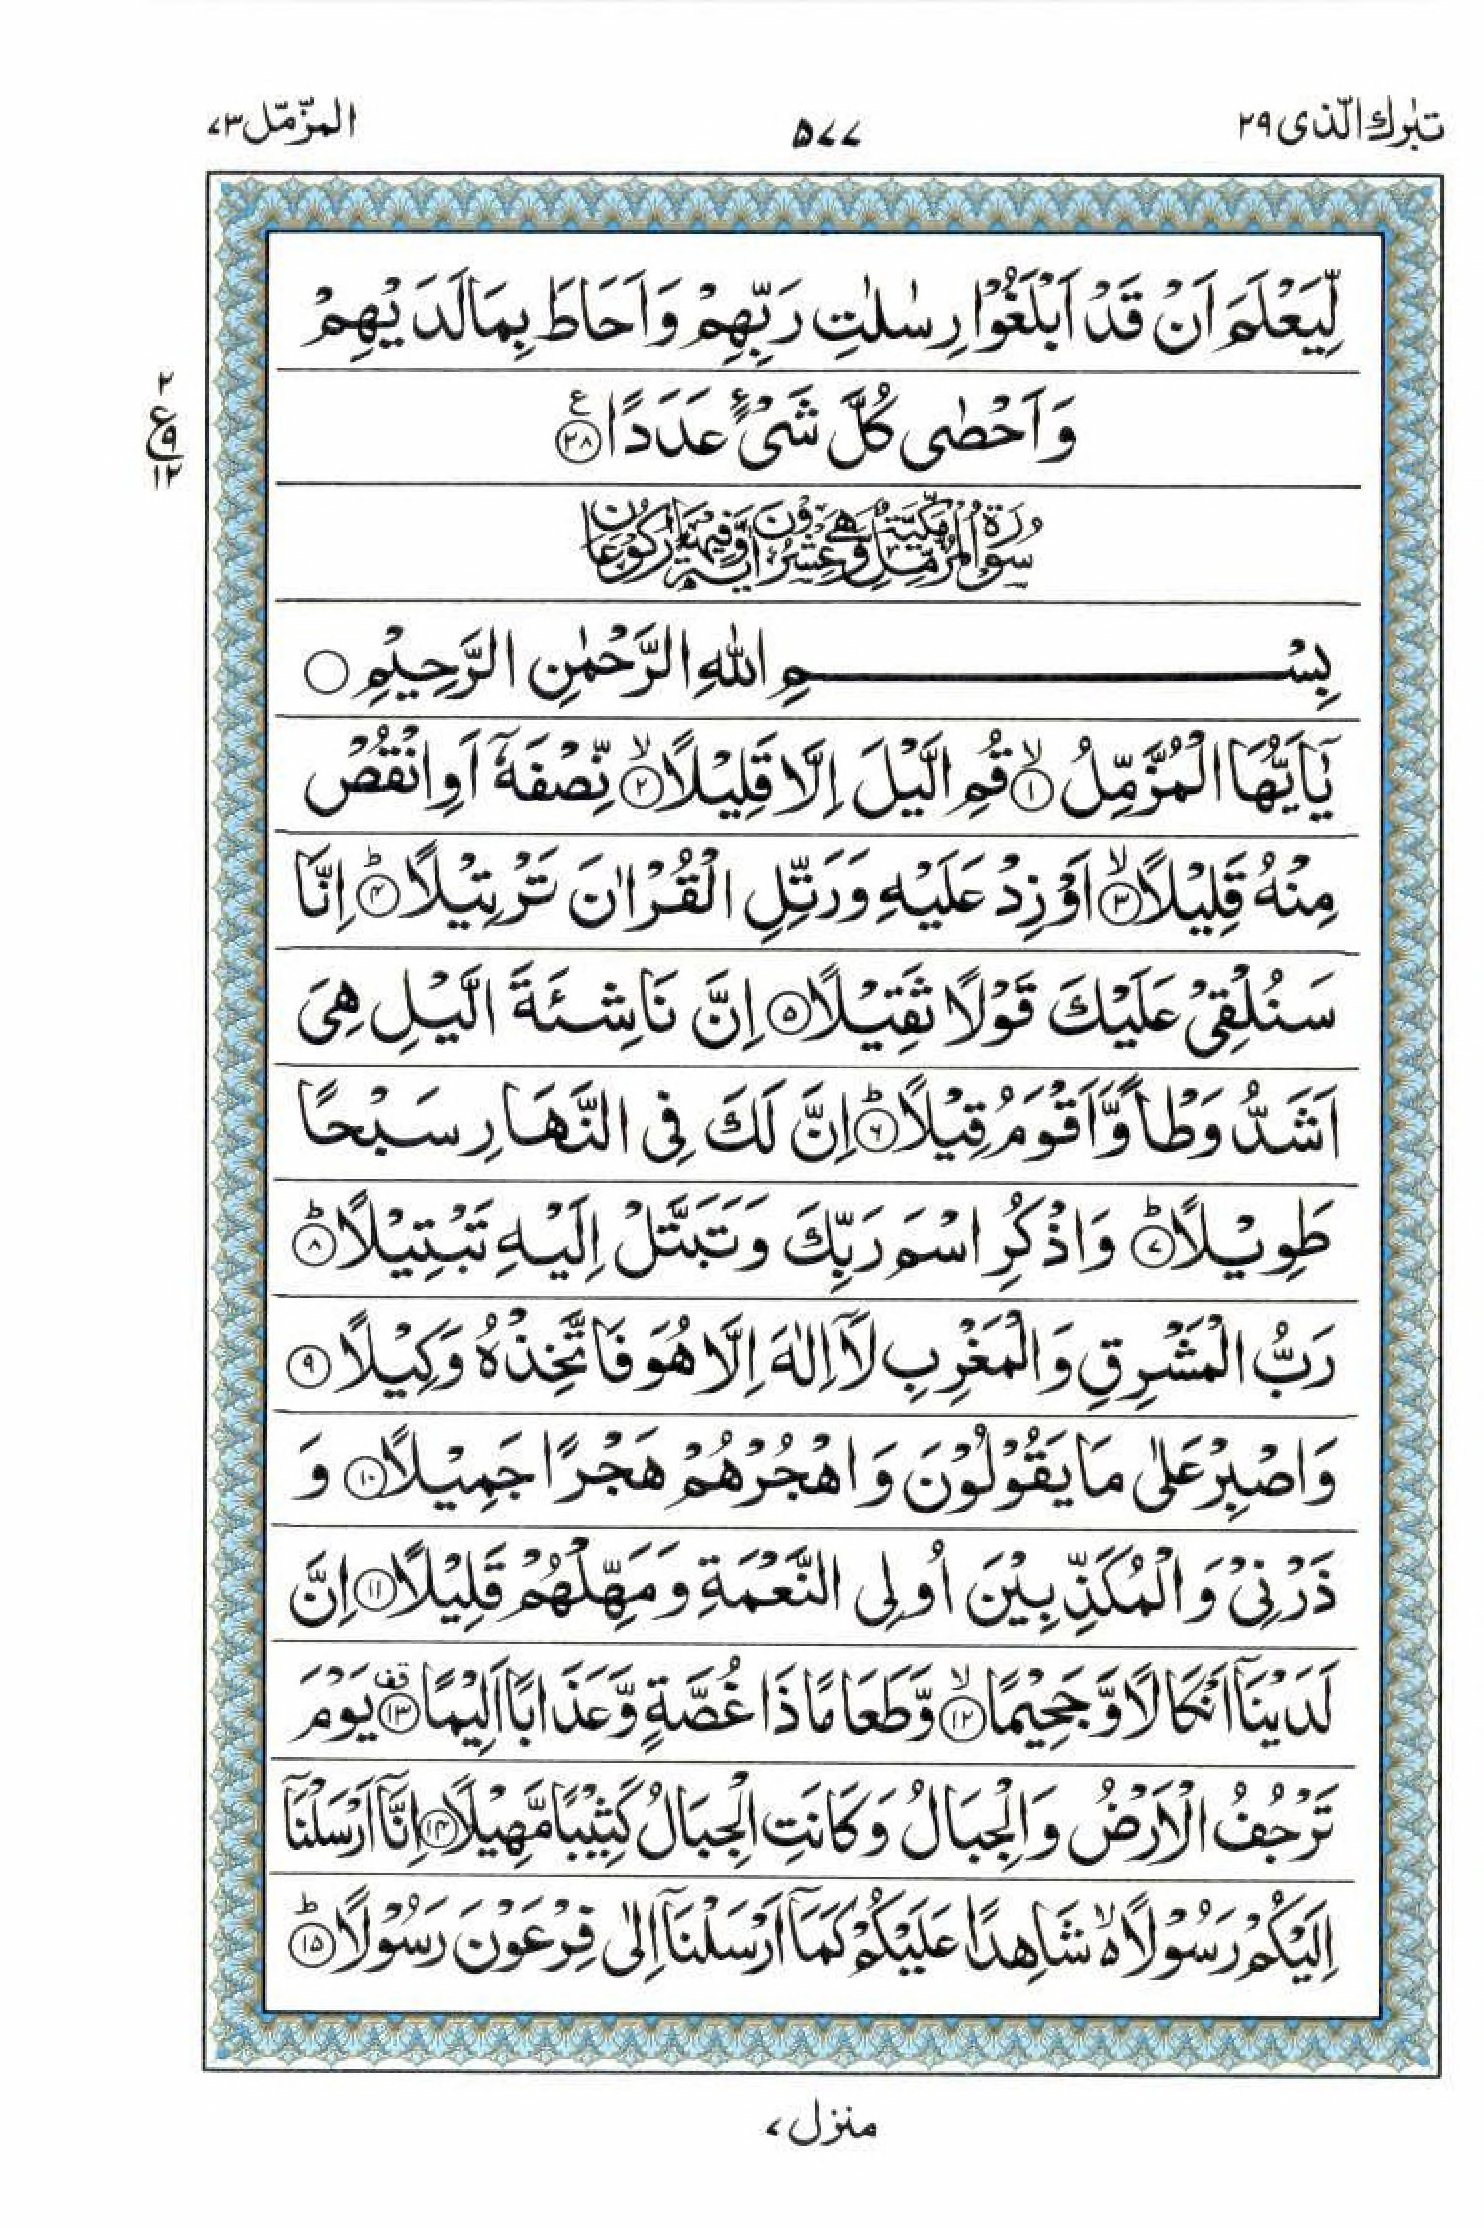 تبٰرك الّذى ٢٩
٥٧٧
المزّمّل ٧٣
لِّيَعْلَمَ اَنْ قَدْ اَبْلَغُوْا رِسٰلٰتِ رَبِّهِمْ وَ اَحَاطَ بِمَا لَدَيْهِمْ
وَ اَحْصٰى كُلَّ شَىْءٍ عَدَدًا ۧ ﴿٢٨﴾
٢
ع
٩
١٢
سُوْرَةُ الْمُزَّمِّلِ مَكِّيَّةٌ وَّهِيَ عِشْرُوْنَ اٰيَةً وَّفِيْهَا رُكُوْعَانِ
بِسْمِ اللّٰهِ الرَّحْمٰنِ الرَّحِيْمِ ○
يٰۤاَيُّهَا الْمُزَّمِّلُ ۙ﴿١﴾ قُمِ الَّيْلَ اِلَّا قَلِيْلًا ۙ﴿٢﴾ نِّصْفَهٗۤ اَوِ انْقُصْ
مِنْهُ قَلِيْلًا ۙ﴿٣﴾ اَوْ زِدْ عَلَيْهِ وَ رَتِّلِ الْقُرْاٰنَ تَرْتِيْلًا ؕ﴿٤﴾ اِنَّا
سَنُلْقِىْ عَلَيْكَ قَوْلًا ثَقِيْلًا ﴿٥﴾ اِنَّ نَاشِئَةَ الَّيْلِ هِىَ
اَشَدُّ وَطْاً وَّ اَقْوَمُ قِيْلًا ؕ﴿٦﴾ اِنَّ لَكَ فِى النَّهَارِ سَبْحًا
طَوِيْلًا ؕ﴿٧﴾ وَ اذْكُرِ اسْمَ رَبِّكَ وَ تَبَتَّلْ اِلَيْهِ تَبْتِيْلًا ؕ﴿٨﴾
رَبُّ الْمَشْرِقِ وَ الْمَغْرِبِ لَاۤ اِلٰهَ اِلَّا هُوَ فَاتَّخِذْهُ وَكِيْلًا ﴿٩﴾
وَ اصْبِرْ عَلٰى مَا يَقُوْلُوْنَ وَ اهْجُرْهُمْ هَجْرًا جَمِيْلًا ﴿١٠﴾ وَ
ذَرْنِىْ وَ الْمُكَذِّبِيْنَ اُولِى النَّعْمَةِ وَ مَهِّلْهُمْ قَلِيْلًا ﴿١١﴾ اِنَّ
لَدَيْنَاۤ اَنْكَالًا وَّ جَحِيْمًا ۙ﴿١٢﴾ وَّ طَعَامًا ذَا غُصَّةٍ وَّ عَذَابًا اَلِيْمًا قف ﴿١٣﴾ يَوْمَ
تَرْجُفُ الْاَرْضُ وَ الْجِبَالُ وَ كَانَتِ الْجِبَالُ كَثِيْبًا مَّهِيْلًا ﴿١٤﴾ اِنَّاۤ اَرْسَلْنَاۤ
اِلَيْكُمْ رَسُوْلًا ۥۙ شَاهِدًا عَلَيْكُمْ كَمَاۤ اَرْسَلْنَاۤ اِلٰى فِرْعَوْنَ رَسُوْلًا ؕ﴿١٥﴾
منزل ٧